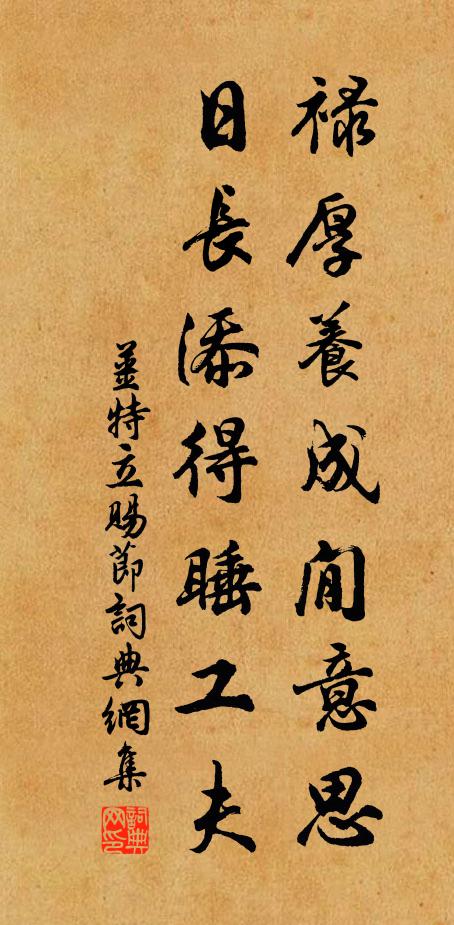 禄厚養成閒意思
日長添得睡工夫
薑特立賜節詞典網集
詞典網印